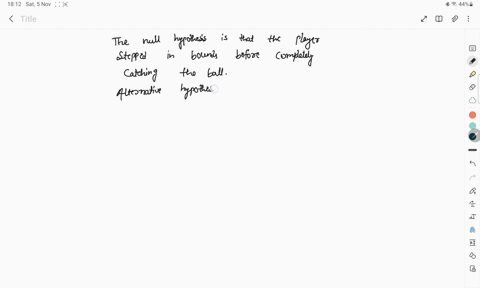 18:12 Sat, 5 Nov
44%
Title
The null hypothesis is that the player
Stepped in bounds before completely
Catching the ball.
Alternative hypothes